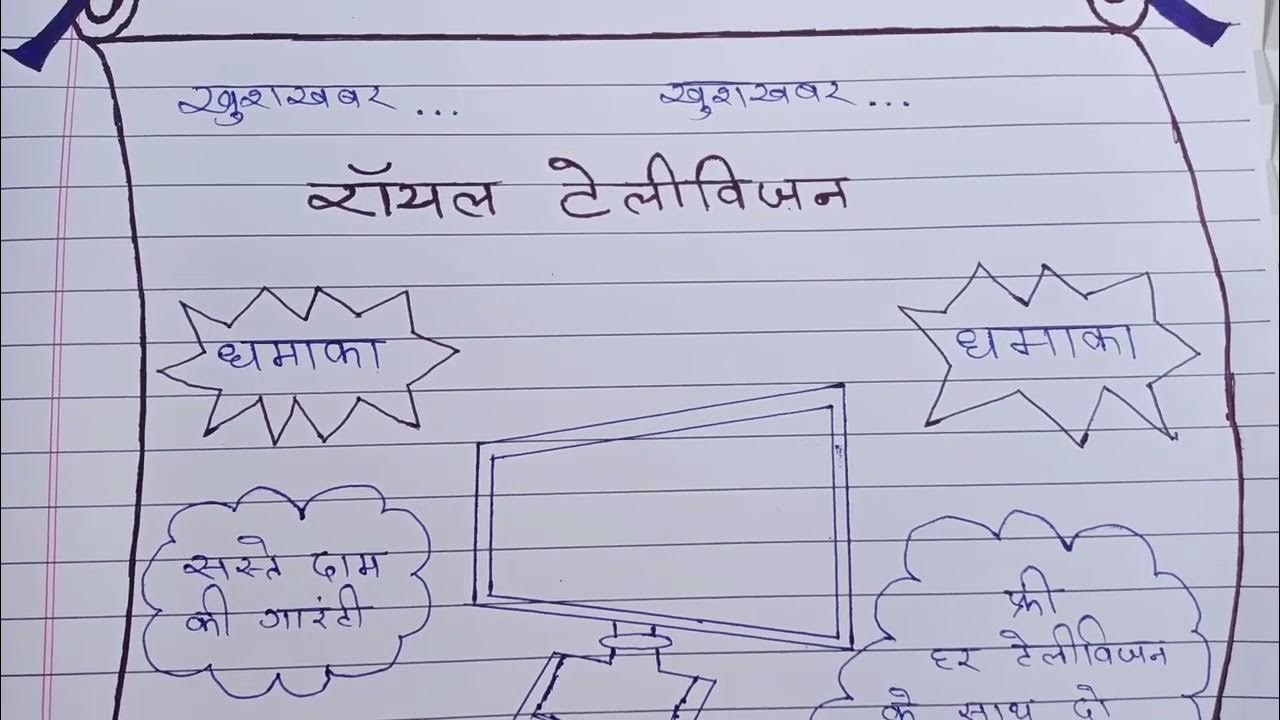 खुशखबर ... खुशखबर ...
रॉयल टेलीविज़न
धमाका धमाका
सस्ते दाम
की गारंटी
फ्री
हर टेलीविजन
के साथ दो